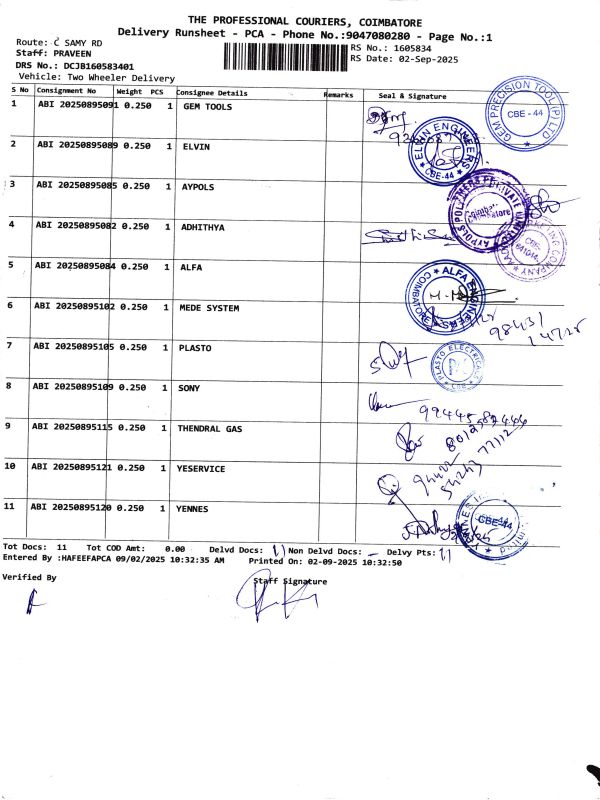 THE PROFESSIONAL COURIERS, COIMBATORE
Delivery Runsheet - PCA - Phone No.:9047080280 - Page No.:1
Route: C SAMY RD
RS No.: 1605834
Staff: PRAVEEN
RS Date: 02-Sep-2025
DRS No.: DCJB160583401
Vehicle: Two Wheeler Delivery
S No Consignment No Weight PCS Consignee Details Remarks Seal & Signature
1 ABI 20250895091 0.250 1 GEM TOOLS
GEM PRECISION TOOL(P) LTD CBE - 44
2 ABI 20250895089 0.250 1 ELVIN
ELVIN ENGINEERS CBE-44
3 ABI 20250895085 0.250 1 AYPOLS
AYPOLS POLYMERS PRIVATE LIMITED
4 ABI 20250895082 0.250 1 ADHITHYA
5 ABI 20250895084 0.250 1 ALFA
ALFA ENGINEERS COIMBATORE
6 ABI 20250895102 0.250 1 MEDE SYSTEM
98431
14725
7 ABI 20250895105 0.250 1 PLASTO
PLASTO ELECTRICALS CBE
8 ABI 20250895109 0.250 1 SONY
9 ABI 20250895115 0.250 1 THENDRAL GAS
10 ABI 20250895121 0.250 1 YESERVICE
94422
54243
11 ABI 20250895120 0.250 1 YENNES
CBE-44
Tot Docs: 11 Tot COD Amt: 0.00 Delvd Docs: 11 Non Delvd Docs: - Delvy Pts: 11
Entered By :HAFEEFAPCA 09/02/2025 10:32:35 AM Printed On: 02-09-2025 10:32:50
Verified By Staff Signature